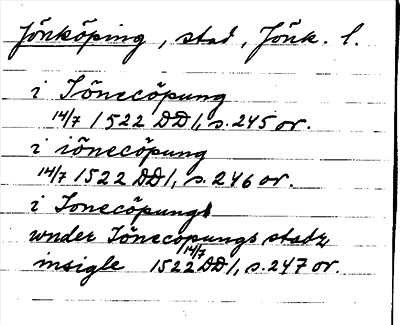 Jönköping, stad, Jönk. l.
i Iönecöpung
14/7 1522 DD 1, s. 245 or.
i iönecöpung
14/7 1522 DD 1, s. 246 or.
i Ionecöpungs
wnder Iönecopungs stadz
insigle 14/7 1522 DD 1, s. 247 or.